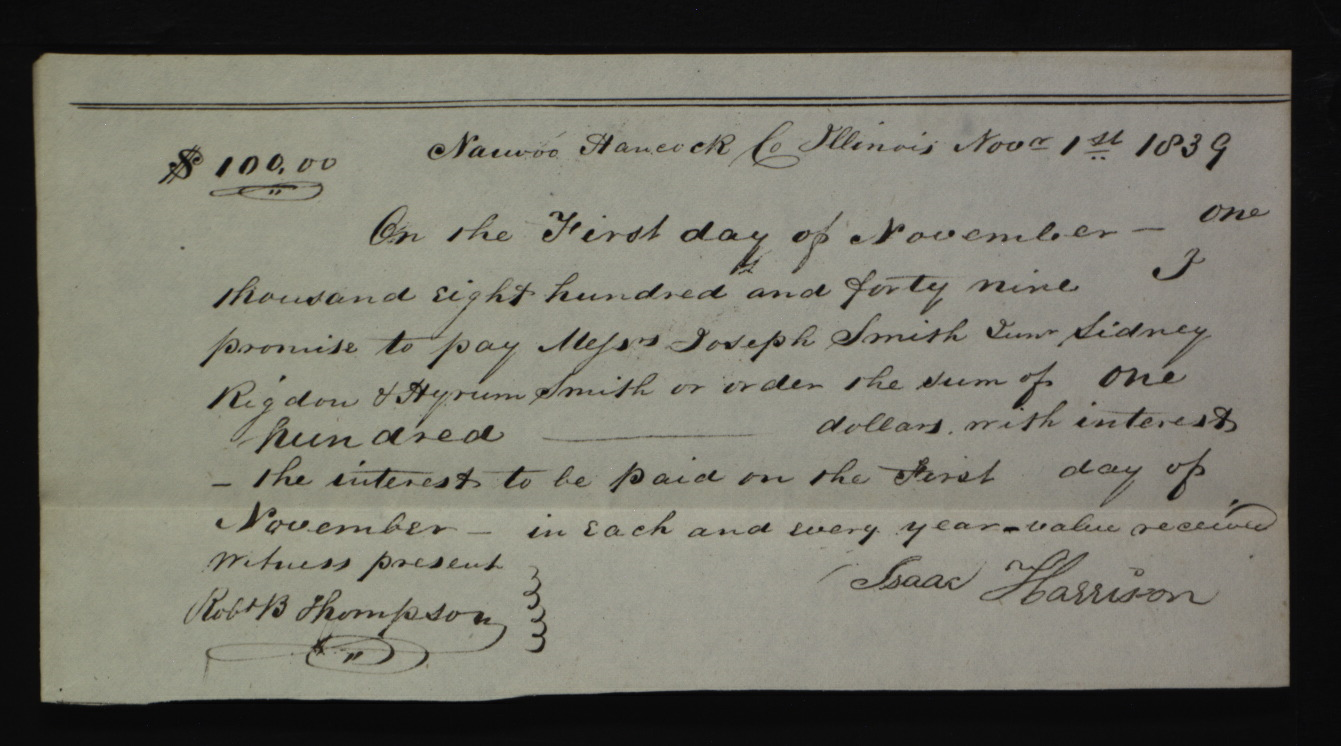 $100,00 Nauvoo Hancock Co Illinois Novr 1st 1839
On the First day of November – one
thousand eight hundred and forty nine I
promise to pay Messrs Joseph Smith Junr Sidney
Rigdon & Hyrum Smith or order the sum of one
hundred ——— dollars with interest
– the interest to be paid on the First day of
November – in Each and every year – value received
Witness present
Isaac Harrison
Robt B Thompson